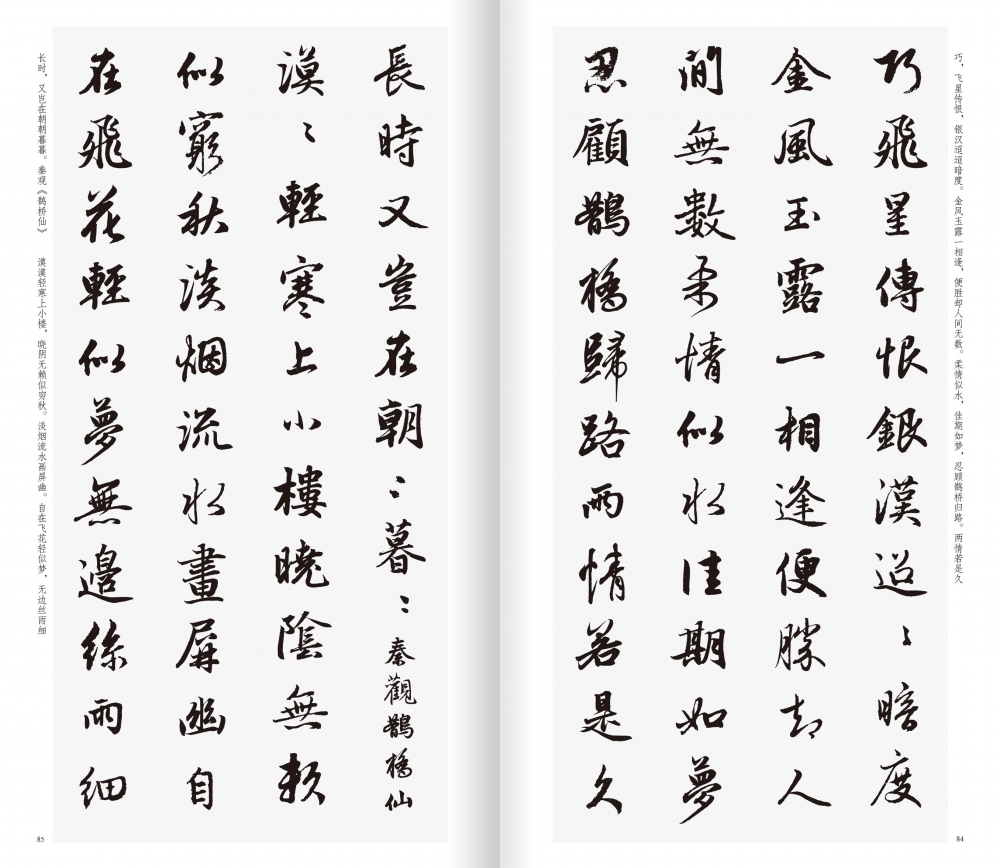 巧，飞星传恨，银汉迢迢暗度。金风玉露一相逢，便胜却人间无数。柔情似水，佳期如梦，忍顾鹊桥归路。两情若是久
巧飛星傳恨銀漢迢〻暗度
金風玉露一相逢便勝却人
間無數柔情似水佳期如夢
忍顧鵲橋歸路兩情若是久
84
長時又豈在朝〻暮〻秦觀鵲橋仙
漠〻輕寒上小樓曉陰無賴
似窮秋淡烟流水畫屏幽自
在飛花輕似夢無邊絲雨細
长时，又岂在朝朝暮暮。秦观《鹊桥仙》　漠漠轻寒上小楼，晓阴无赖似穷秋。淡烟流水画屏幽。自在飞花轻似梦，无边丝雨细
85